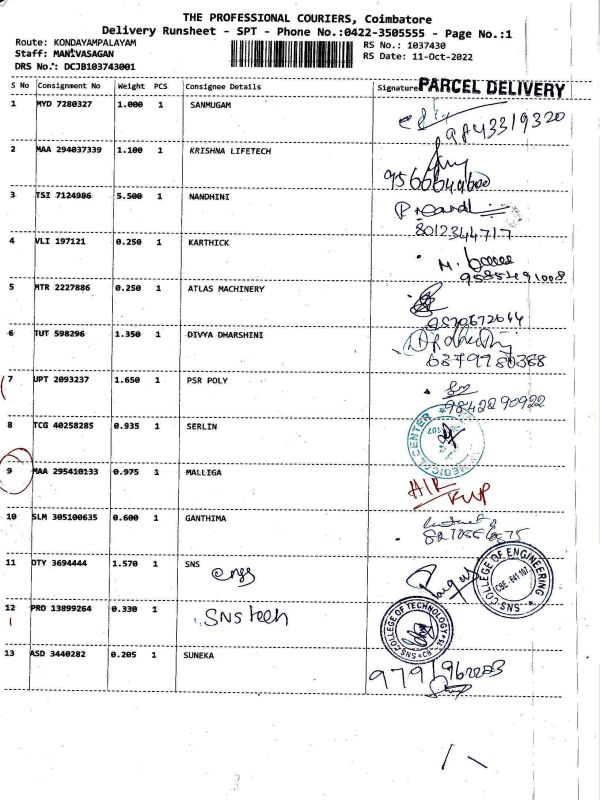 THE PROFESSIONAL COURIERS, Coimbatore
Delivery Runsheet - SPT - Phone No.:0422-3505555 - Page No.:1
Route: KONDAYAMPALAYAM
Staff: MANIVASAGAN
DRS No.: DCJB103743001
RS No.: 1037430
RS Date: 11-Oct-2022
S No Consignment No Weight PCS Consignee Details Signature PARCEL DELIVERY
1 MYD 7280327 1.000 1 SANMUGAM
9843319320
2 MAA 294037339 1.100 1 KRISHNA LIFETECH
3 TSI 7124986 5.500 1 NANDHINI
8012344717
4 VLI 197121 0.250 1 KARTHICK
M.
9585491008
5 MTR 2227886 0.250 1 ATLAS MACHINERY
6 TUT 598296 1.350 1 DIVYA DHARSHINI
6379780368
7 UPT 2093237 1.650 1 PSR POLY
9842290922
8 TCG 40258285 0.935 1 SERLIN
MEDICAL CENTER
9 MAA 295410133 0.975 1 MALLIGA
10 SLM 305100635 0.600 1 GANTHIMA
11 DTY 3694444 1.570 1 SNS
COLLEGE OF ENGINEERING
SNS
12 PRO 13899264 0.330 1 SNS tech
COLLEGE OF TECHNOLOGY
SNS
13 ASD 3440282 0.205 1 SUNEKA